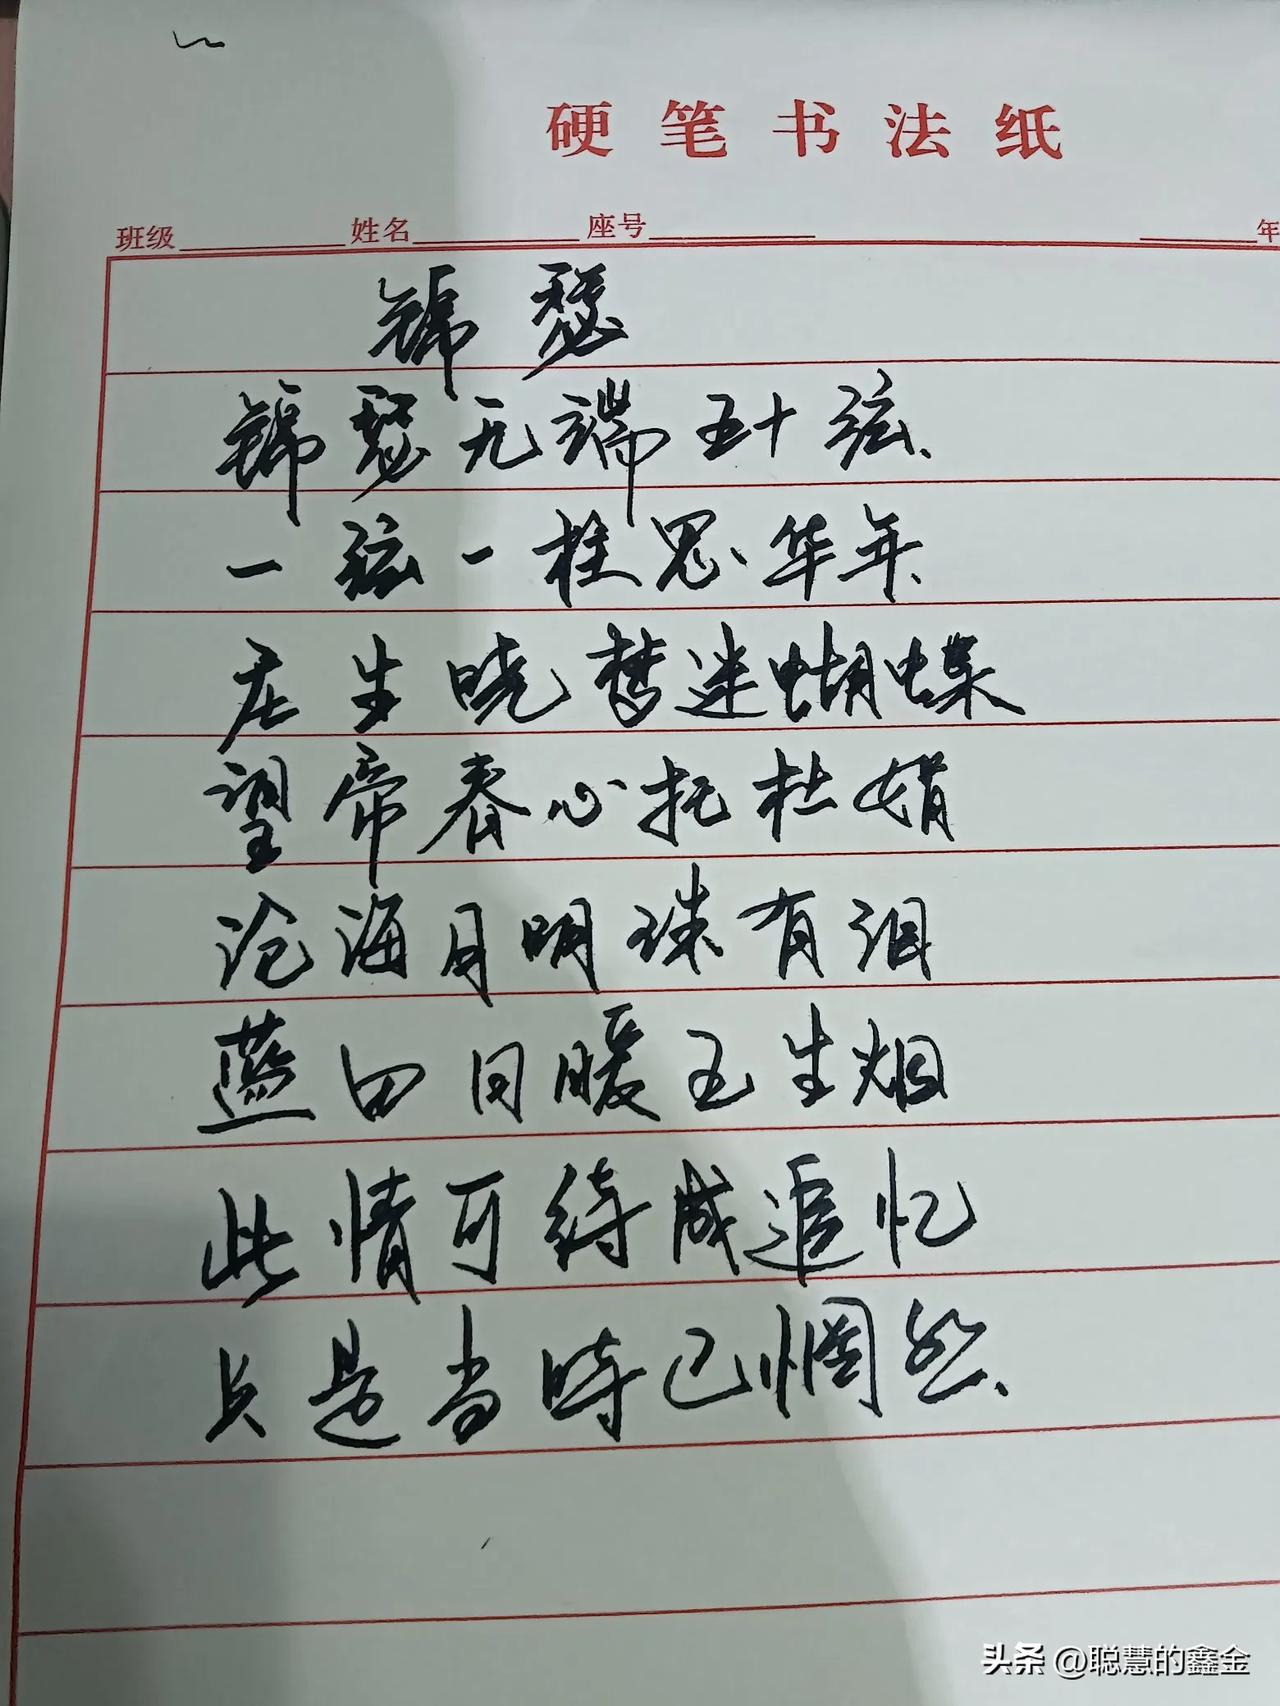 硬笔书法纸
班级 姓名 座号 年
锦瑟
锦瑟无端五十弦、
一弦一柱思华年、
庄生晓梦迷蝴蝶
望帝春心托杜娟
沧海月明珠有泪
蓝田日暖玉生烟
此情可待成追忆
只是当时已惘然、
头条 @聪慧的鑫金